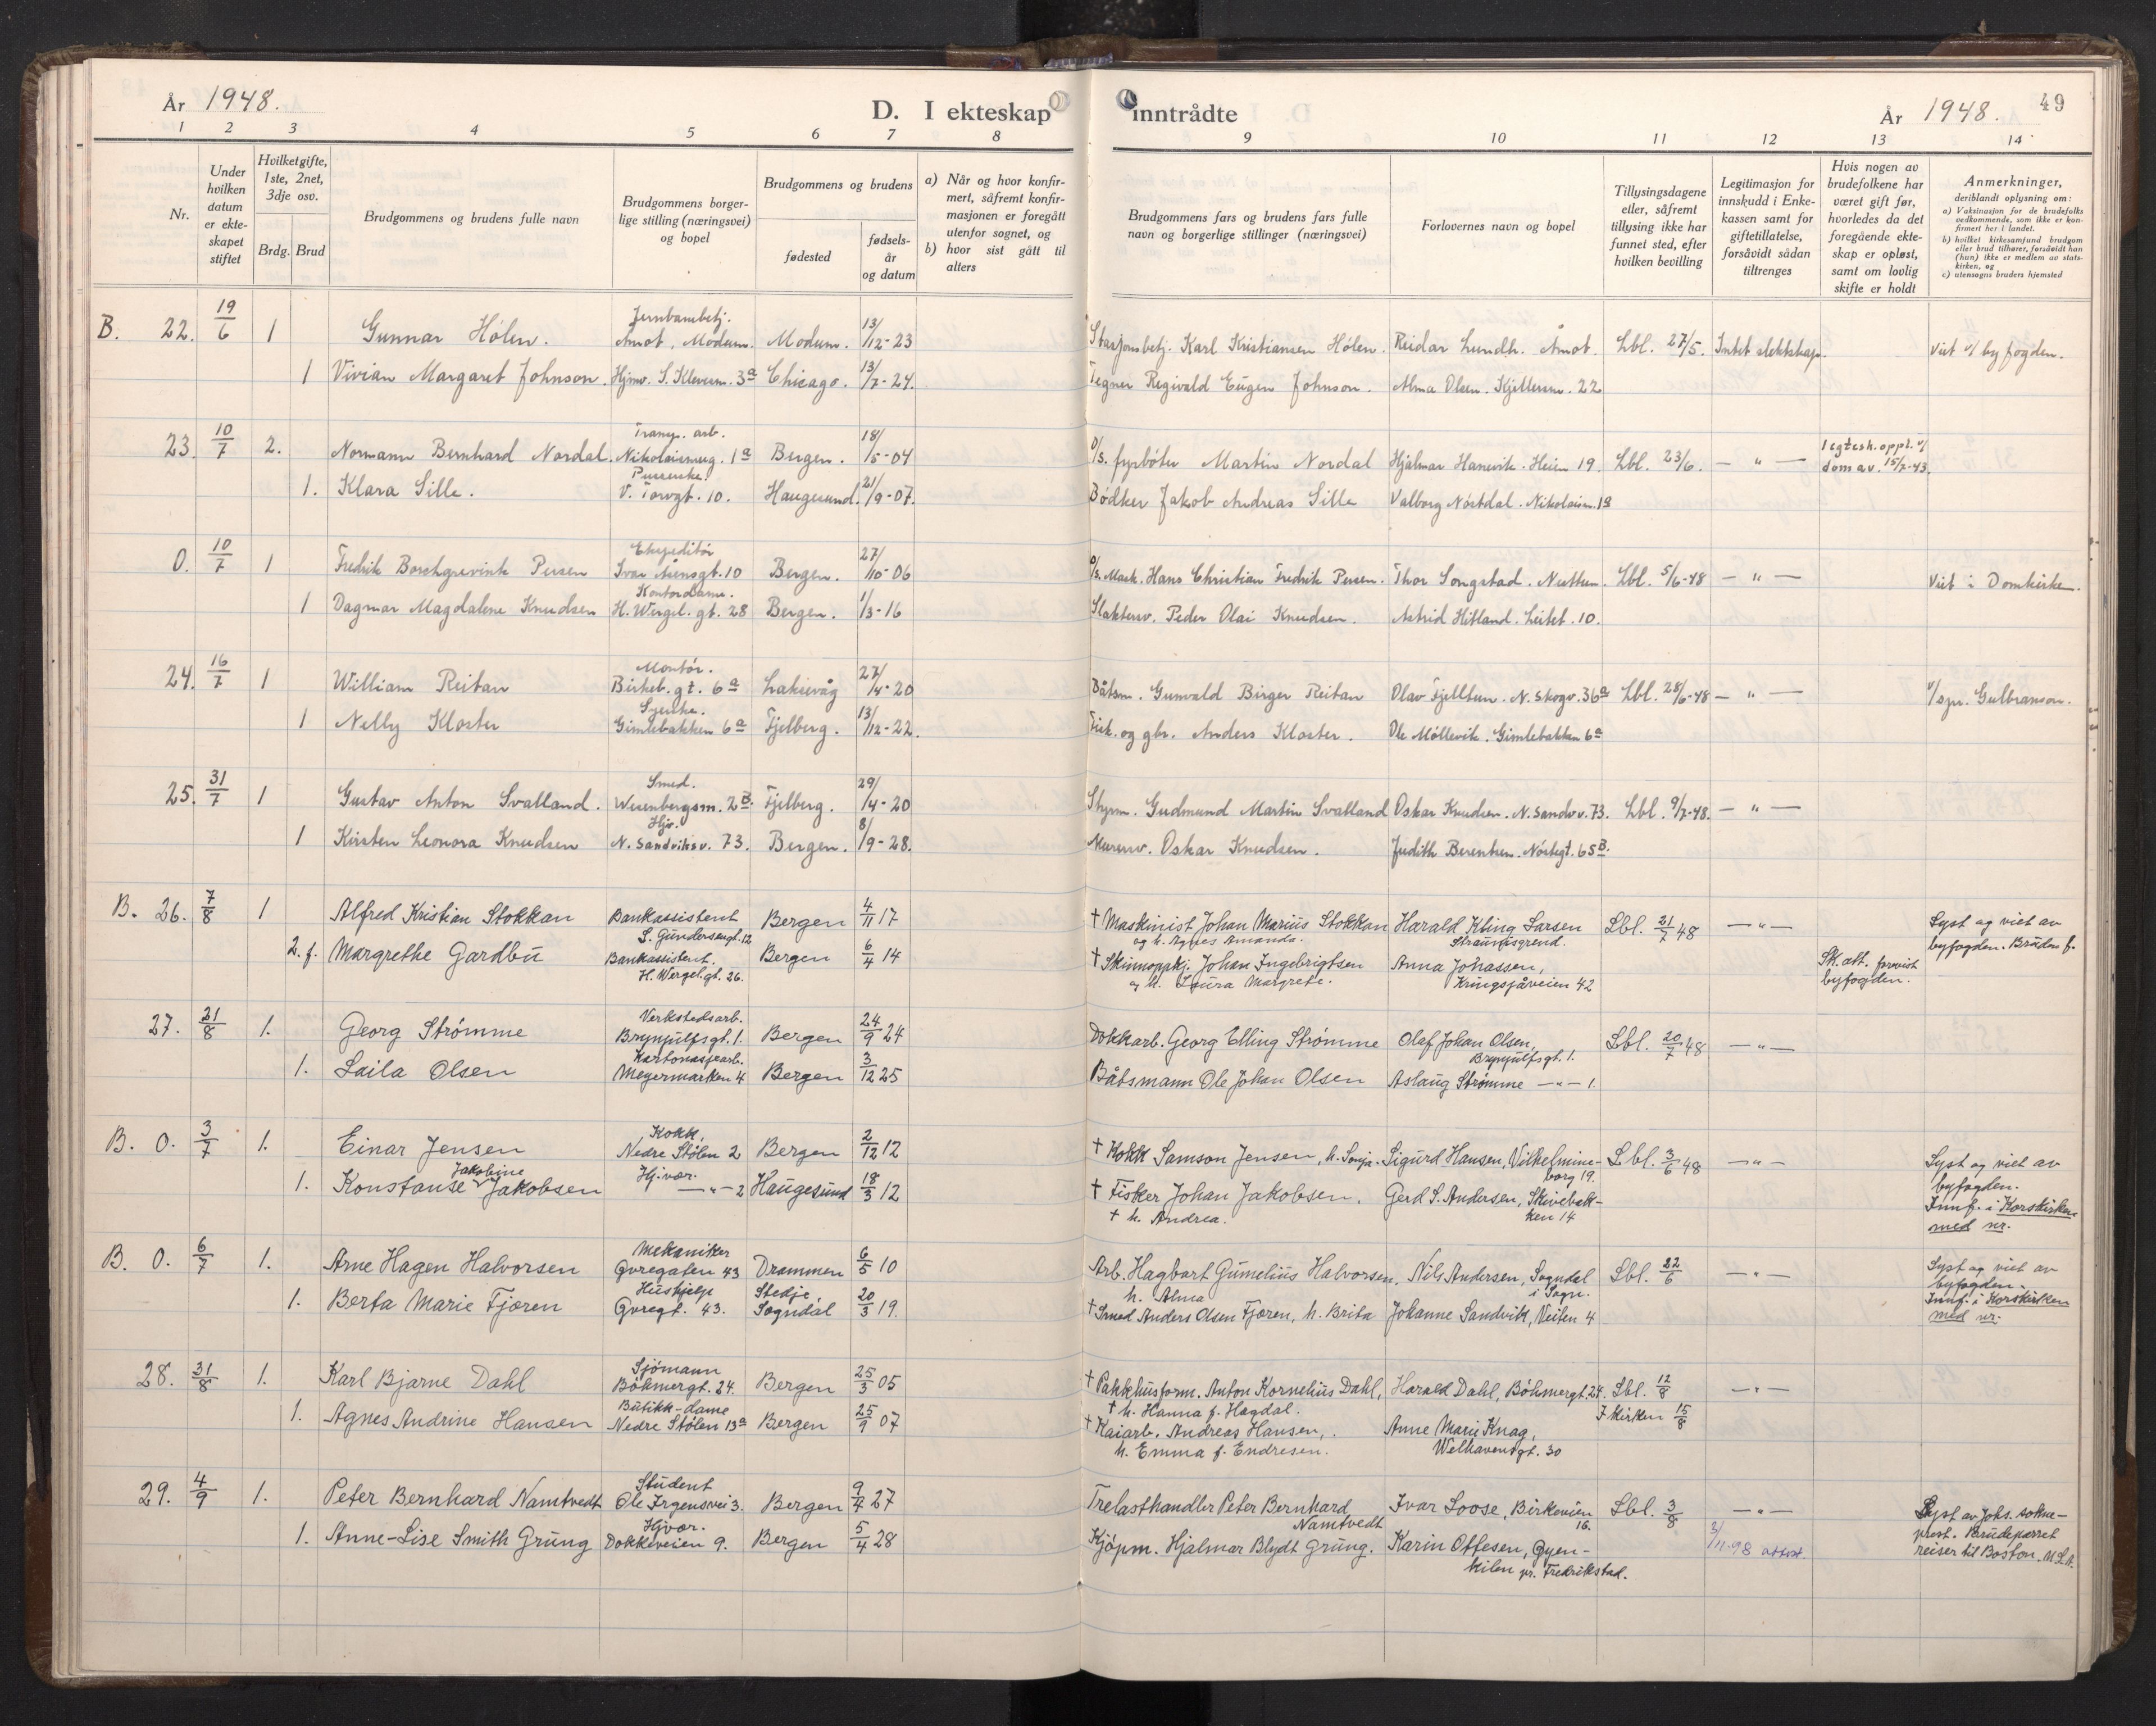 År 1948.
D. I ekteskap inntrådte
År 1948. 49
1 2 3 4 5 6 7 8 9 10 11 12 13 14
Nr.
Under hvilken datum er ekteskapet stiftet
Hvilket gifte, 1ste, 2net, 3dje osv.
Brdg. Brud
Brudgommens og brudens fulle navn
Brudgommens borgerlige stilling (næringsvei) og bopel
Brudgommens og brudens
fødested
fødselsår og datum
a) Når og hvor konfirmert, såfremt konfirmasjonen er foregått utenfor sognet, og
b) hvor sist gått til alters
Brudgommens fars og brudens fars fulle navn og borgerlige stillinger (næringsvei)
Forlovernes navn og bopel
Tillysingsdagene eller, såfremt tillysing ikke har funnet sted, efter hvilken bevilling
Legitimasjon for innskudd i Enkekassen samt for giftetillatelse, forsåvidt sådan tiltrenges
Hvis nogen av brudefolkene har været gift før, hvorledes da det foregående ekteskap er opløst, samt om lovlig skifte er holdt
Anmerkninger, deriblandt oplysning om:
a) Vaksinasjon for de brudefolks vedkommende, som ikke er konfirmert her i landet.
b) hvilket kirkesamfund brudgom eller brud tilhører, forsåvidt han (hun) ikke er medlem av statskirken, og
c) utensogns bruders hjemsted
B. 22. 19/6 1 Gunnar Hølen. Jernbanebetj. Åmot, Modum. Modum. 13/12-23 Stasjonsbetj. Karl Kristiansen Hølen. Reidar Lundh. Åmot. Lbl. 27/5. Intet slektskap. Viet v/ byfogden.
1 Vivian Margaret Johnson. Hjmv. S. Kleverm. 3a Chicago. 13/7-24. Tegner Reginald Eugen Johnson. Alma Olsen. Kjellersm. 22
23. 10/7 2. Normann Bernhard Nordal. Transp. arb. Nikolaismug. 1a Bergen. 18/5-04 D/s. fyrbøter Martin Nordal Hjalmar Hanevik. Heien 19. Lbl. 23/6. — " — 1 egtesk. oppl. v/ dom av. 15/7-43.
1. Klara Sille. V. Torvgt. 10. Haugesund. 21/9-07. Bødker Jakob Andreas Sille Valborg Nordal. Nikolaism. 1a
0. 10/7 1 Fredrik Borchgrevink Persen Ekspeditør Ivar Aasensgt. 10 Bergen. 27/10-06 D/s. Mask. Hans Christian Fredrik Persen. Thor Songstad. Nuttun. Lbl. 5/6-48 — " — Viet i Domkirken.
1 Dagmar Magdalene Knudsen Kontordame. H. Wergel. gt. 28 Bergen. 1/3-16 Slaktersv. Peder Olai Knudsen. Astrid Hitland. Leitet. 10.
24. 16/7 1 William Reitan Montør. Birkeb. gt. 6a Laksevåg 27/4-20 Båtsm. Gunvald Birger Reitan Olav Fjelltun. N. Skogv. 36a Lbl. 28/6-48 — " — v/spr. Gulbranson.
1 Nelly Kloster Syerske. Gimlebakken 6a Fjelberg. 13/12-22. Fisk. og gbr. Anders Kloster. Ole Møllevik. Gimlebakken 6a
25. 31/7 1 Gustav Anton Svalland. Smed. Wesenbergsm. 2B. Fjelberg. 29/4-20 Styrm. Gudmund Martin Svalland Oskar Knudsen. N. Sandv. v. 73. Lbl. 9/7-48. — " —
1 Kirsten Leonora Knudsen Hjv. N. Sandviksv. 73. Bergen. 8/9-28. Murersv. Oskar Knudsen. Judith Berentsen. Nøstegt. 65B.
B. 26. 7/8 1 Alfred Kristian Stokkan Bankassistent S. Gundersengt. 12 Bergen 4/11 17 † Maskinist Johan Marius Stokkan og h. Agnes Amanda. Harald Kling Larsen Straumsgrend. Lbl. 21/7 48 — " — Lyst og viet av byfogden. Bruden f.
2. f. Margrethe Gardbu Bankassistent. H. Wergel. gt. 26. Bergen 6/4 14 † Skinnoppkj. Johan Ingebrigtsen og h. Laura Margrete. Anna Johassen, Kringsjåveien 42 Sk. att. forevist byfogden.
27. 21/8 1. Georg Strømme Verkstedsarb. Brynjulfsgt. 1. Bergen 24/9 24 Dokkarb. Georg Elling Strømme Olaf Johan Olsen, Brynjulfsgt. 1. Lbl. 20/7 48 — " —
1. Laila Olsen Kartonasjearb. Meyermarken 4 Bergen 3/12 25 Båtsmann Ole Johan Olsen Aslaug Strømme — " — 1.
B. 0. 3/7 1. Einar Jensen Kokk, Nedre Stølen 2 Bergen 2/12 12 † Kokk Samson Jensen, h. Sonja. Sigurd Hansen, Vilhelmineborg 19. Lbl. 3/6 48 — " — Lyst og viet av byfogden. Innf. i Korskirken med nr.
1. Konstanse Jakobine Jakobsen Hj.vær. — " — 2 Haugesund 18/3 12 † Fisker Johan Jakobsen. † h. Andrea. Gerd S. Andersen, Skivebakken 14
B. 0. 6/7 1. Arne Hagen Halvorsen Mekaniker Øvregaten 43 Drammen 6/5 10 Arb. Hagbart Gumelius Halvorsen, h. Alma Nils Andersen, Sogndal i Sogn. Lbl. 22/6 — " — Lyst og viet av byfogden. Innf. i Korskirken med nr.
1. Berta Marie Fjæren Hushjelp Øvregt. 43. Stedje Sogndal 20/3 19. † Smed Anders Olsen Fjæren, h. Brita Johanne Sandvik, Veiten 4
28. 31/8 1. Karl Bjarne Dahl Sjømann Bøhmergt. 24. Bergen 25/3 05 † Pakkhusform. Anton Kornelius Dahl, † h. Hanna f. Hagdal. Harald Dahl, Bøhmergt. 24. Lbl. 12/8 I kirken 15/8 — " —
1. Agnes Andrine Hansen Butikk-dame Nedre Stølen 13a Bergen 25/9 07 † Kaiarb. Andreas Hansen, h. Emma f. Endresen. Anne Marie Knag, Welhavensgt. 30
29. 4/9 1. Peter Bernhard Namtvedt Student Ole Irgensvei 3. Bergen 9/4 27 Trelasthandler Peter Bernhard Namtvedt Ivar Loose, Birkeveien 16. Lbl. 3/8 — " — Lyst av Johs. sokneprest. Brudeparret reiser til Boston. U.S.A.
1. Anne-Lise Smith Grung Hjvær. Dokkeveien 9. Bergen 5/4 28 Kjøpm. Hjalmar Blydt Grung. Karin Ottesen, Øyenkilen pr. Fredrikstad. 3/11-98 attest.